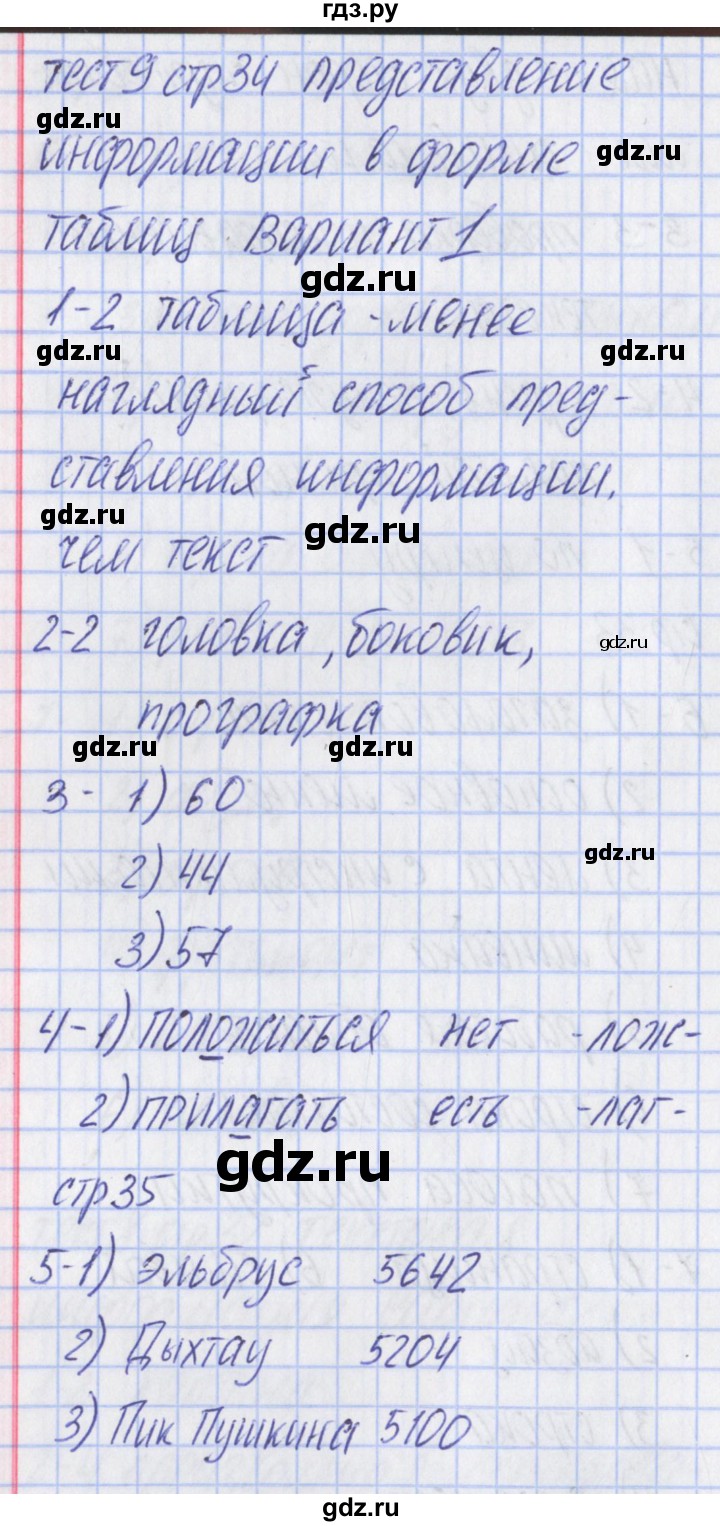 гдз.ру
тест 9 стр 34 представление
gdz.ru
информации в форме gdz.ru
таблиц. Вариант 1
gdz.ru
1-2 таблица - менее
gdz.ru gdz.ru
наглядный способ пред-
ставления информации.
gdz.ru gdz.ru
чем текст
2-2 головка, боковик, gdz.ru
прографка
gdz.ru gdz.ru
3- 1) 60
gdz.ru
2) 44
3) 57
4-1) положиться нет -лож-
2) прилагать есть -лаг-
gdz.ru
стр 35
5-1) Эльбрус 5642
2) Дыхтау 5204
3) Пик Пушкина 5100
gdz.ru